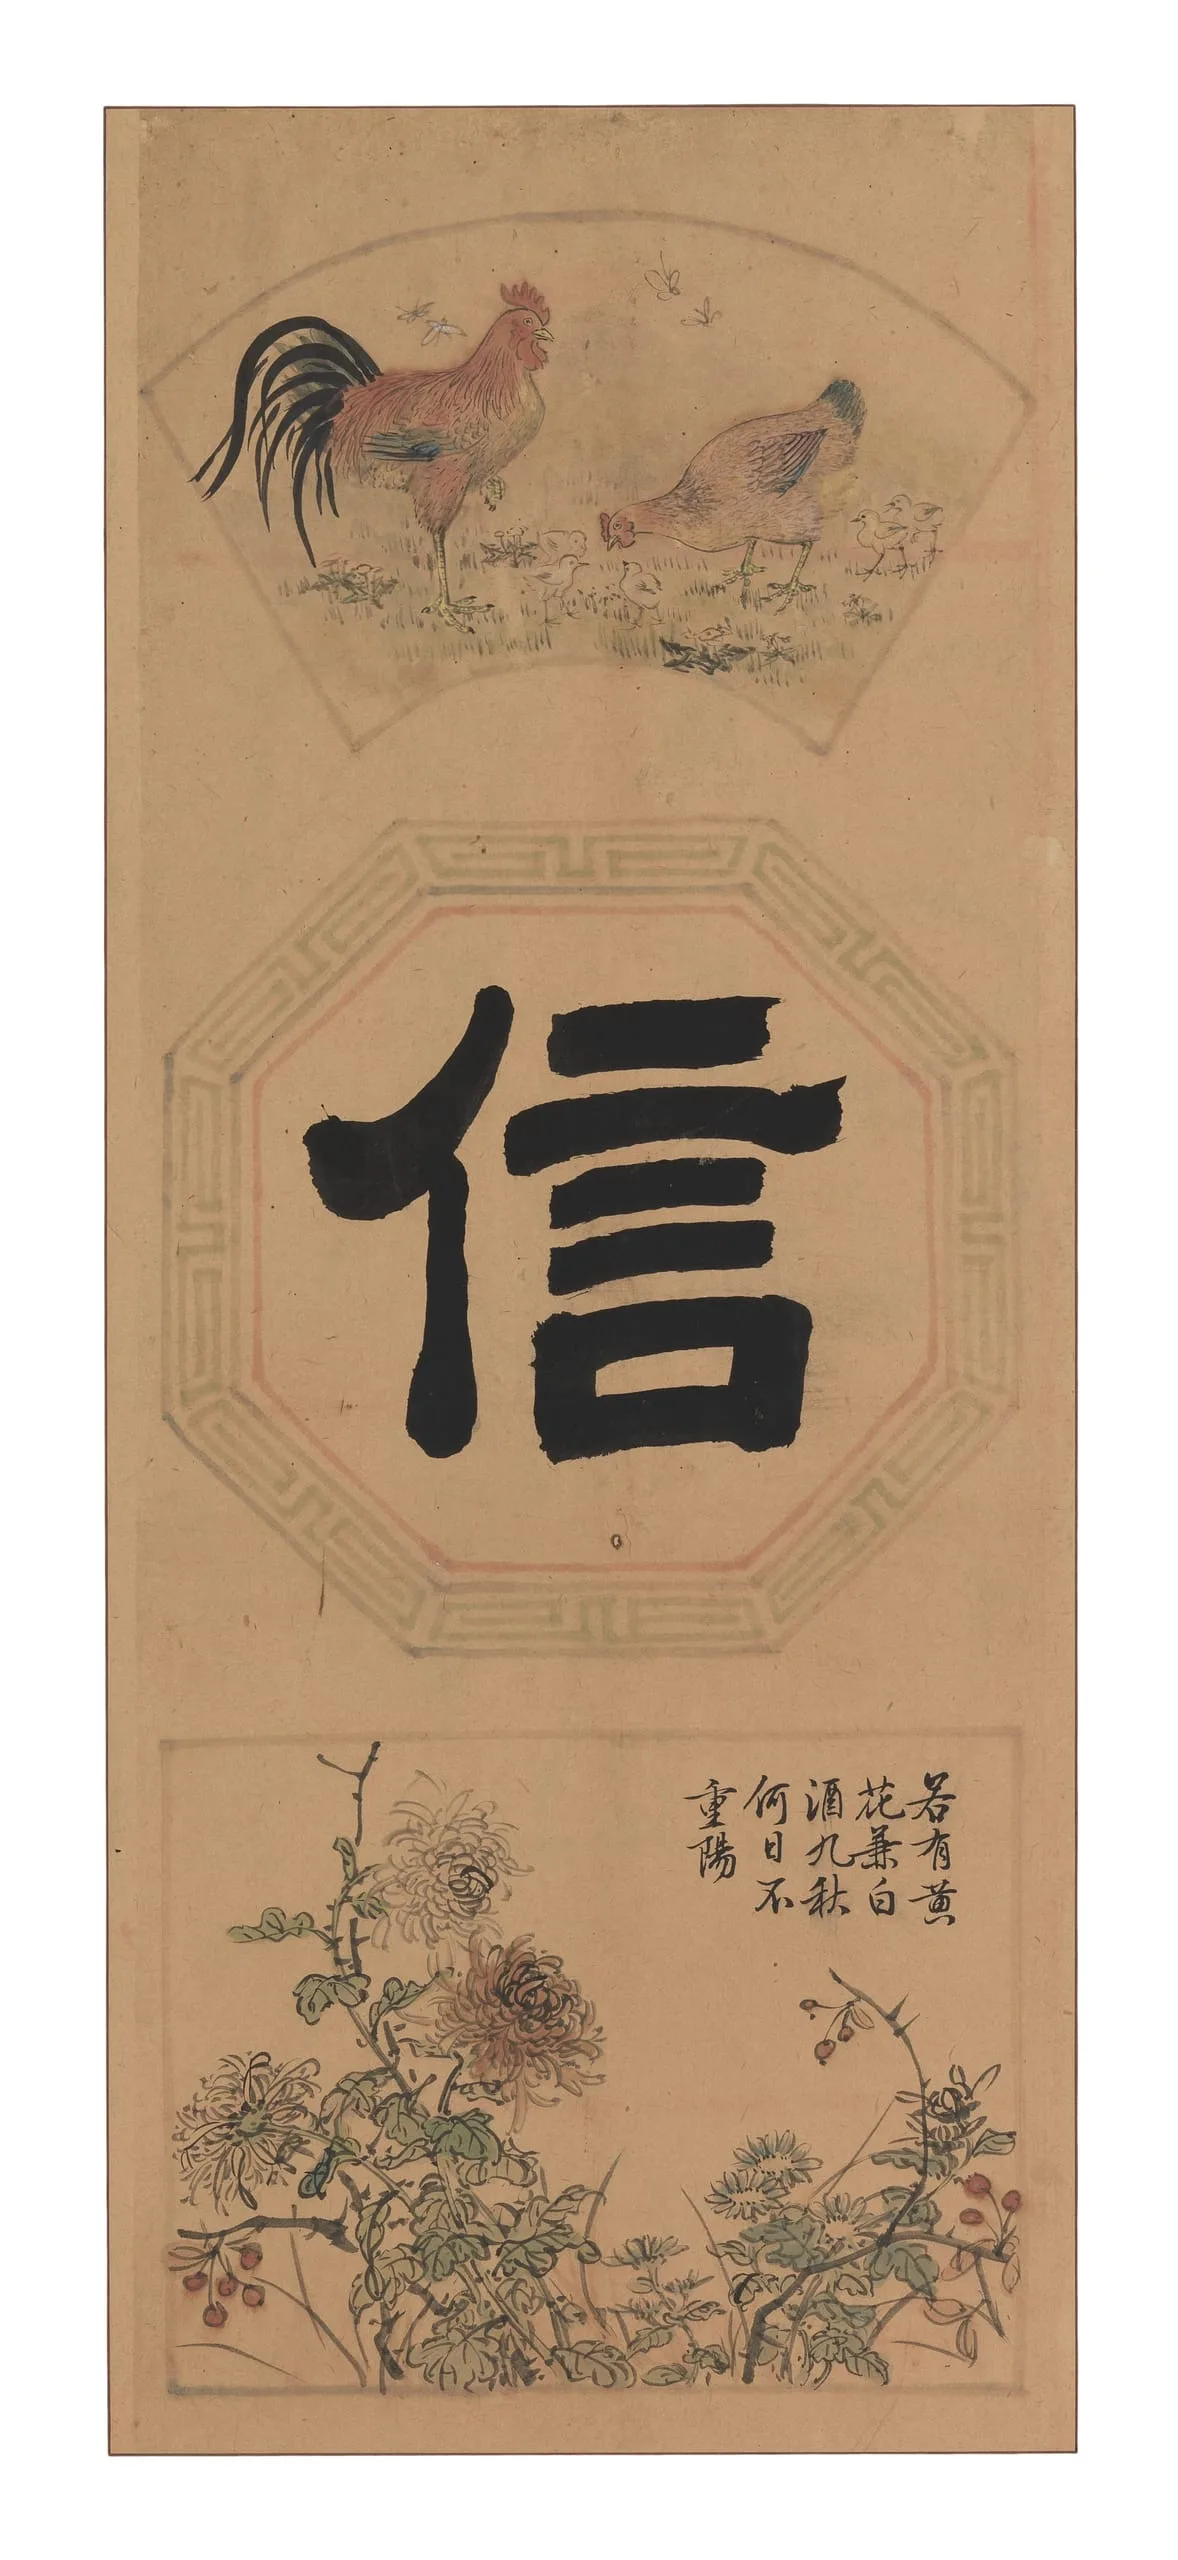 信
若有黄
花兼白
酒九秋
何日不
重陽